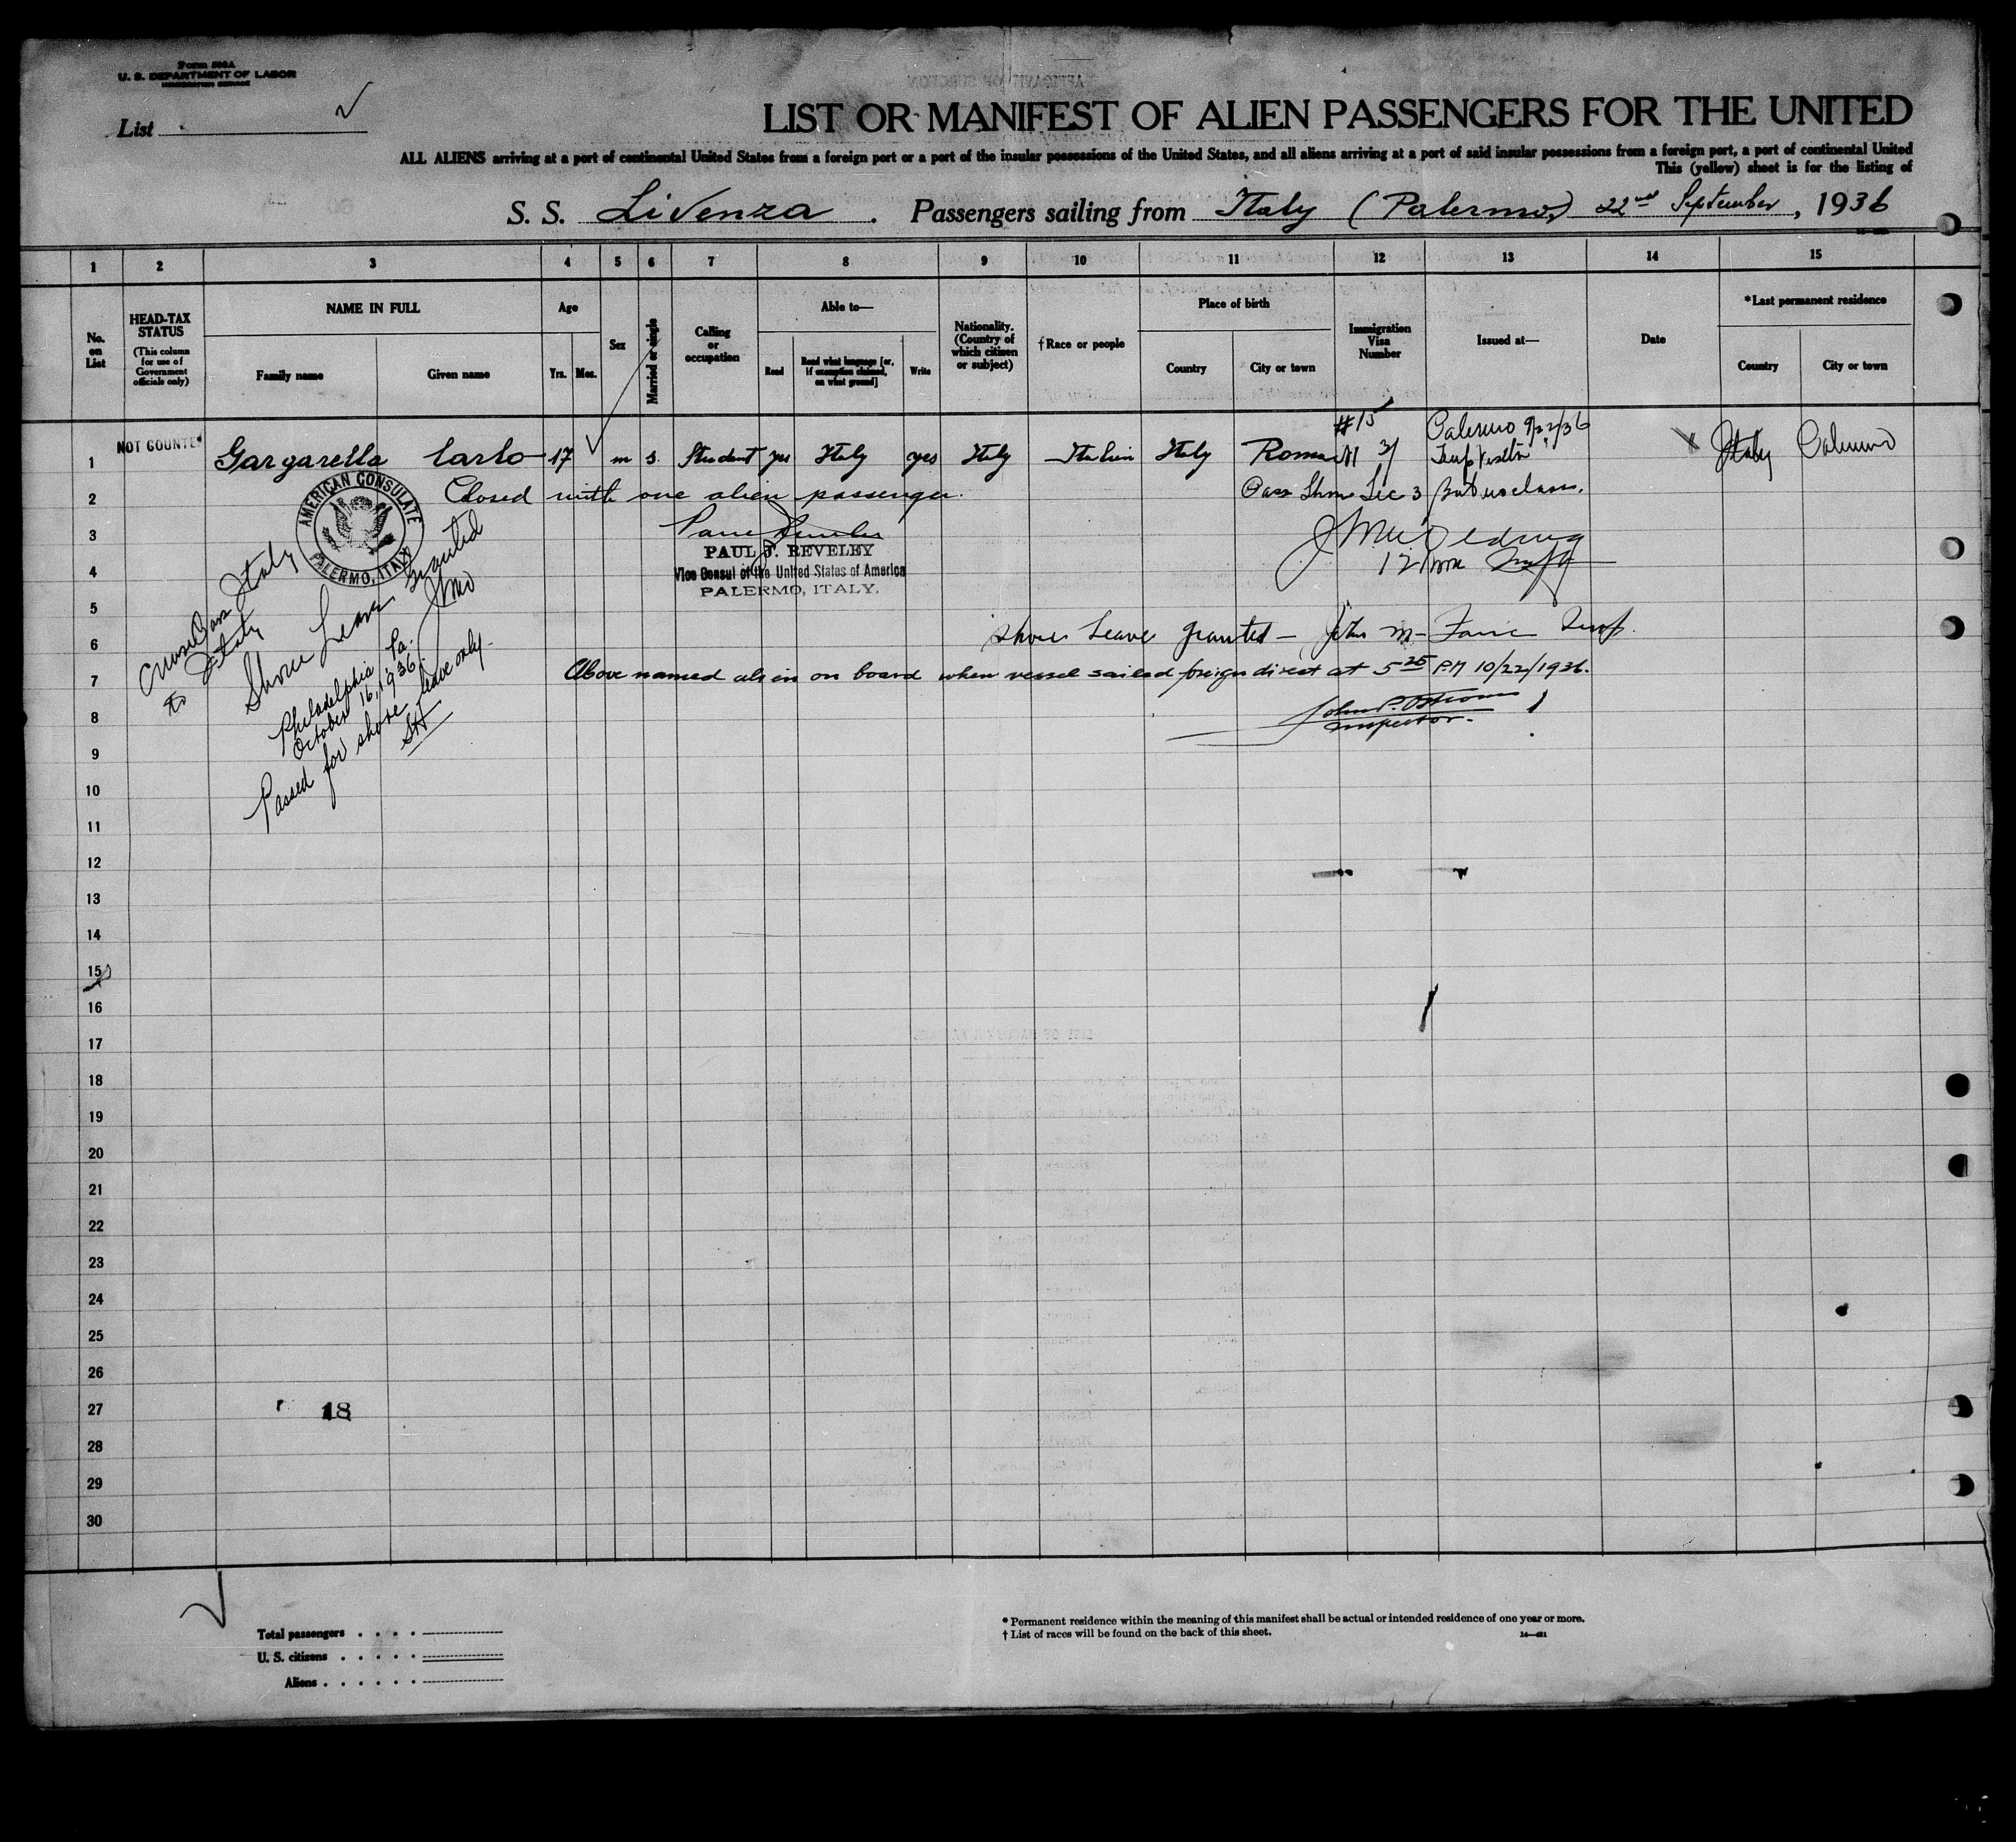 Form 500A
U. S. DEPARTMENT OF LABOR
IMMIGRATION SERVICE
List
LIST OR MANIFEST OF ALIEN PASSENGERS FOR THE UNITED
ALL ALIENS arriving at a port of continental United States from a foreign port or a port of the insular possessions of the United States, and all aliens arriving at a port of said insular possessions from a foreign port, a port of continental United
This (yellow) sheet is for the listing of
S. S. Livenza . Passengers sailing from Italy (Palermo) 22nd September, 1936
1 2 3 4 5 6 7 8 9 10 11 12 13 14 15
No. on List
HEAD-TAX STATUS
(This column for use of Government officials only)
NAME IN FULL
Family name
Given name
Age
Yrs.
Mos.
Sex
Married or single
Calling or occupation
Able to—
Read
Read what language [or, if exemption claimed, on what ground]
Write
Nationality. (Country of which citizen or subject)
†Race or people
Place of birth
Country
City or town
Immigration Visa Number
Issued at—
Date
*Last permanent residence
Country
City or town
#15 Palermo 9/22/36
1 NOT COUNTED Gargarella Carlo 17 m s. Student yes Italy yes Italy Italian Italy Roma 3/ Temp Visitor Italy Palermo
2 Closed with one alien passenger.
Sec 3
AMERICAN CONSULATE
PALERMO, ITALY
3
PAUL J. REVELEY
4 Vice Consul of the United States of America
PALERMO, ITALY.
5
6 Shore Leave granted — John M.
7 Above named alien on board when vessel sailed foreign direct at 5 25 P.M 10/22/1936.
8 John P.
Inspector.
Italy
to Italy
Shore Leave Granted
Philadelphia Pa.
October 16, 1936
Passed for shore leave only.
9
10
11
12
13
14
15
16
17
18
19
20
21
22
23
24
25
26
27 18
28
29
30
Total passengers . . . .
U. S. citizens . . . . .
Aliens . . . . . .
* Permanent residence within the meaning of this manifest shall be actual or intended residence of one year or more.
† List of races will be found on the back of this sheet.